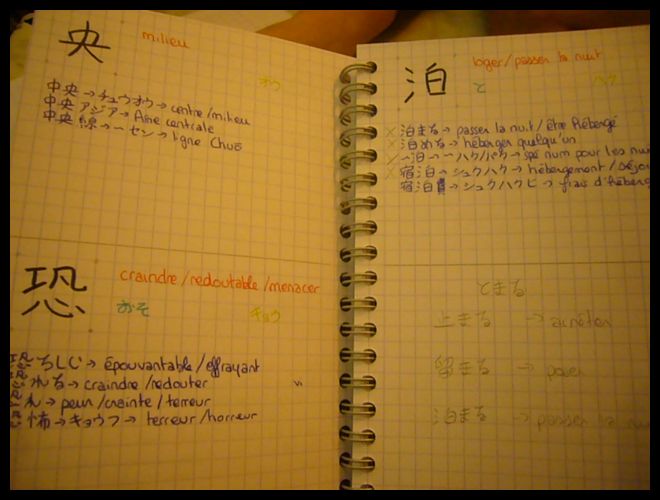 央 milieu
オウ
中央→チュウオウ→centre/milieu
中央アジア→Asie centrale
中央線→ーセン→ligne Chuō
恐 craindre/redoutable/menacer
おそ キョウ
恐ろしい→épouvantable/effrayant
恐れる→craindre/redouter
恐れ→peur/crainte/terreur
恐怖→キョウフ→terreur/horreur
泊 loger/passer la nuit
と ハク
泊まる→passer la nuit/être hébergé
泊める→héberger quelqu'un
一泊→ーハク/パク→spé num pour les nui
宿泊→シュクハク→hébergement/séjou
宿泊費→シュクハクヒ→frais d'héberg
とまる
止まる →arrêter
留まる →
泊まる →passer la nu